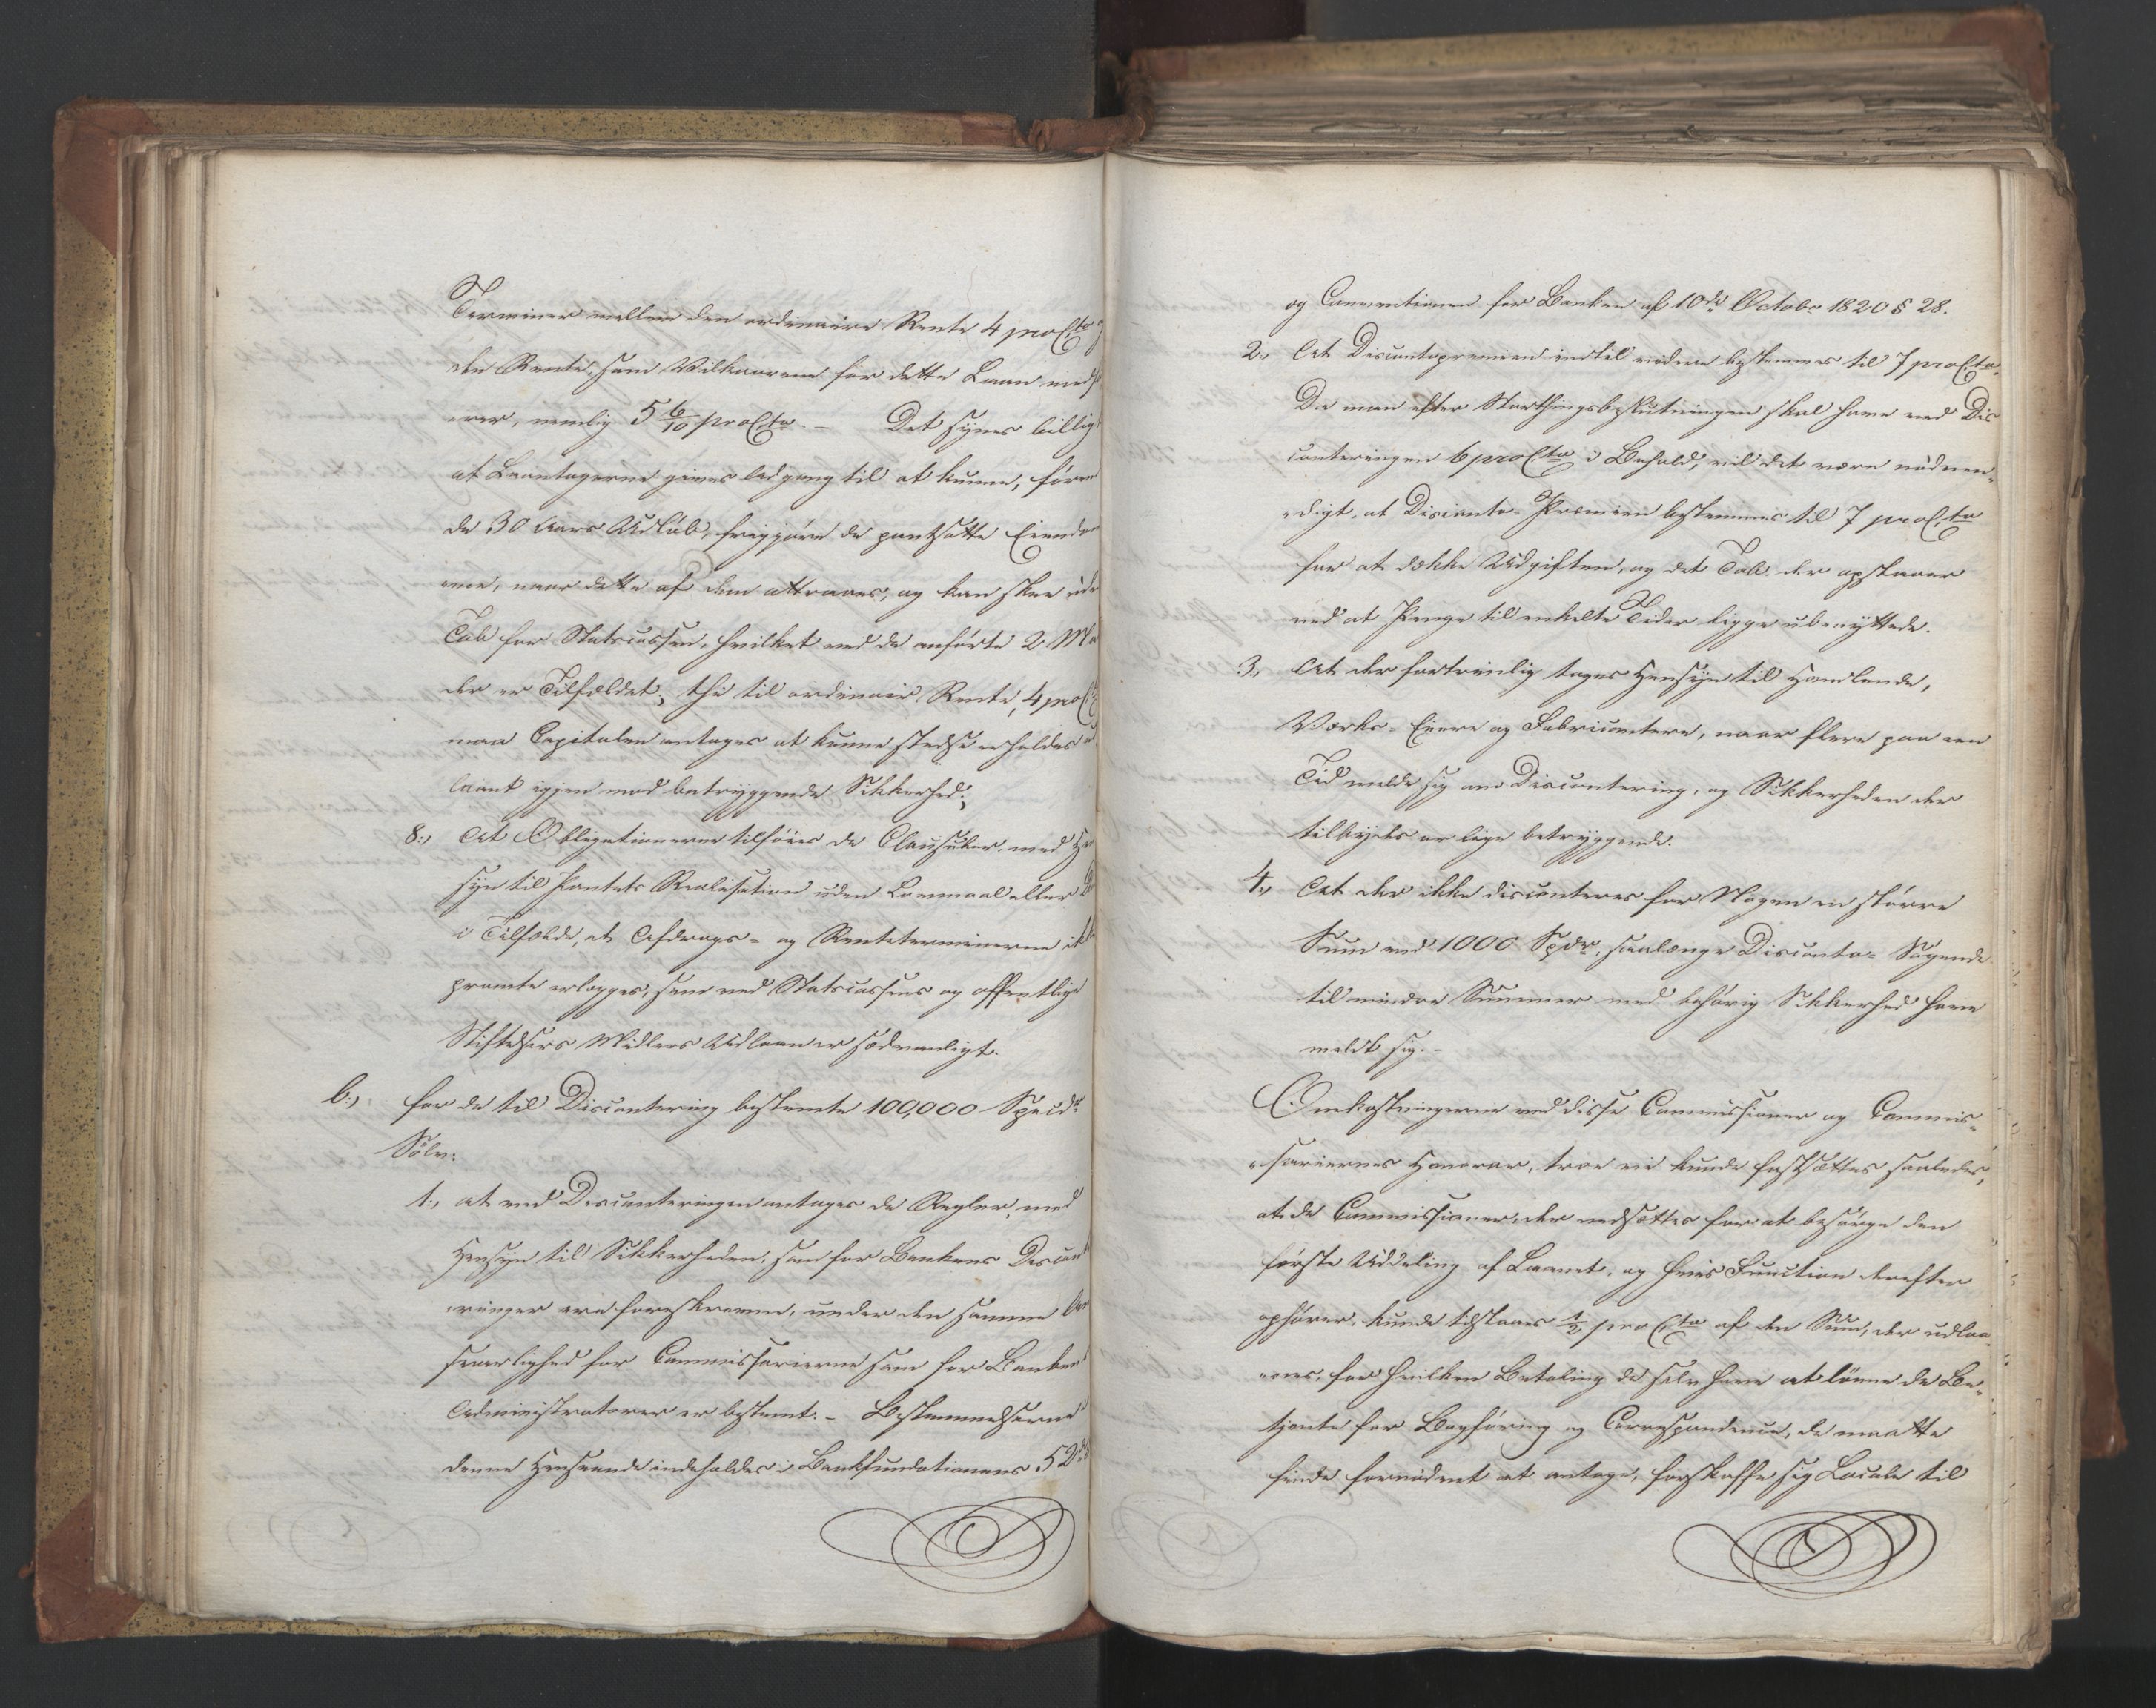 Terminer mellem den ordinaire Rente 4 pro Cto
den Rente, som Vilkaarene for dette Laan med¬
„rer, nemlig 5 6/10 pro Cto. – Det synes billigt
at Laantagerne gives Adgang til at kunne, føren
de 30 Aars Udløb, frigjøre de pantsatte Eiendom
„me, naar dette af dem attraaes, og kan skee uden
Tab for Statscassen, hvilket ved de anførte 2 Maa
der er Tilfældet; thi til ordinair Rente, 4 pro Ct
maa Capitalen antages at kunne stedse erholdes ud
laant igjen mod betryggende Sikkerhed;
8., At Obligationerne tilføies de Clausuler, med Hen
syn til Pantets Realisation uden Lovmaal eller
i Tilfælde, at Afdrags- og Renteterminerne ikke
promte erlægges, som ved Statscassens og offentlige
Stiftelsers Midlers Udlaan er sædvanligt.
b., for de til Discontering bestemte 100,000 Specdr
Sølv:
1., at ved Disconteringen antages de Regler, med
Hensyn til Sikkerheden, som for Bankens Discont
„ringer ere foreskrevne, under den samme An
svarlighed for Commissairerne som for Bankens
Administratorer er bestemt. – Bestemmelserne i
denne Henseende indeholdes i Bankfundationens 52de
og Conventionen for Banken af 10de Octobr 1820 § 28.
2., At Discontopræmien indtil videre bestemmes til 7 pro Cto.
Da man efter Storthingsbeslutningen skal have ved Dis
conteringen 6 pro Cto i Behold, vil det være nødven„
„digt, at Disconto-Præmien bestemmes til 7 pro Cto
for at dække Udgiften, og det Tab, der opstaaer
ved at Penge til enkelte Tider ligge ubenyttede.
3., At der fortrinlig tages Hensyn til Handlende,
Værks-Eiere og Fabricantere, naar flere paa een
Tid melde sig om Discontering, og Sikkerheden der
tilbydes er lige betryggende.
4., At der ikke disconteres for Nogen en større
Sum end 1000 Spdr, saalænge Disconto-Søgende
til mindre Summer med behørig Sikkerhed have
meldt sig. –
Omkostningerne ved disse Commissioner og Commis„
„sariernes Honorar, troe vi kunde fastsættes saaledes,
at de Commissioner, der nedsættes for at besørge den
første Uddeling af Laanet, og hvis Function derefter
ophører, kunde tilstaaes 1/2 pro Cto af den Sum, der udlaa
„nes, for hvilken Betaling de selv have at lønne de Be„
tjente for Bogføring og Correspondence, de maatte
finde fornødent at antage, forskaffe sig Locale til